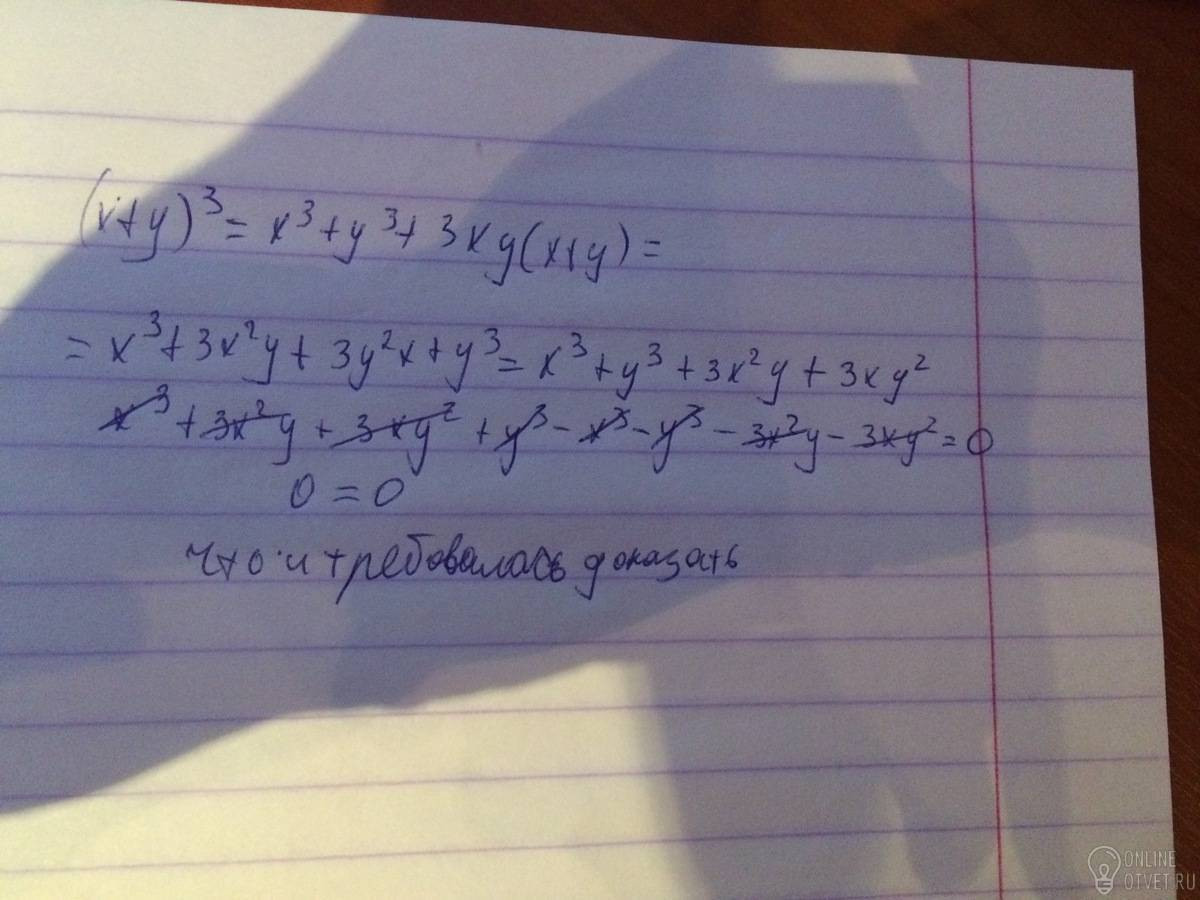 (x+y)³ = x³+y³+3xy(x+y) =
= x³+3x²y+3y²x+y³ = x³+y³+3x²y+3xy²
x³+3x²y+3xy²+y³-x³-y³-3x²y-3xy²=0
0=0
что и требовалась доказать
ONLINE
OTVET.RU